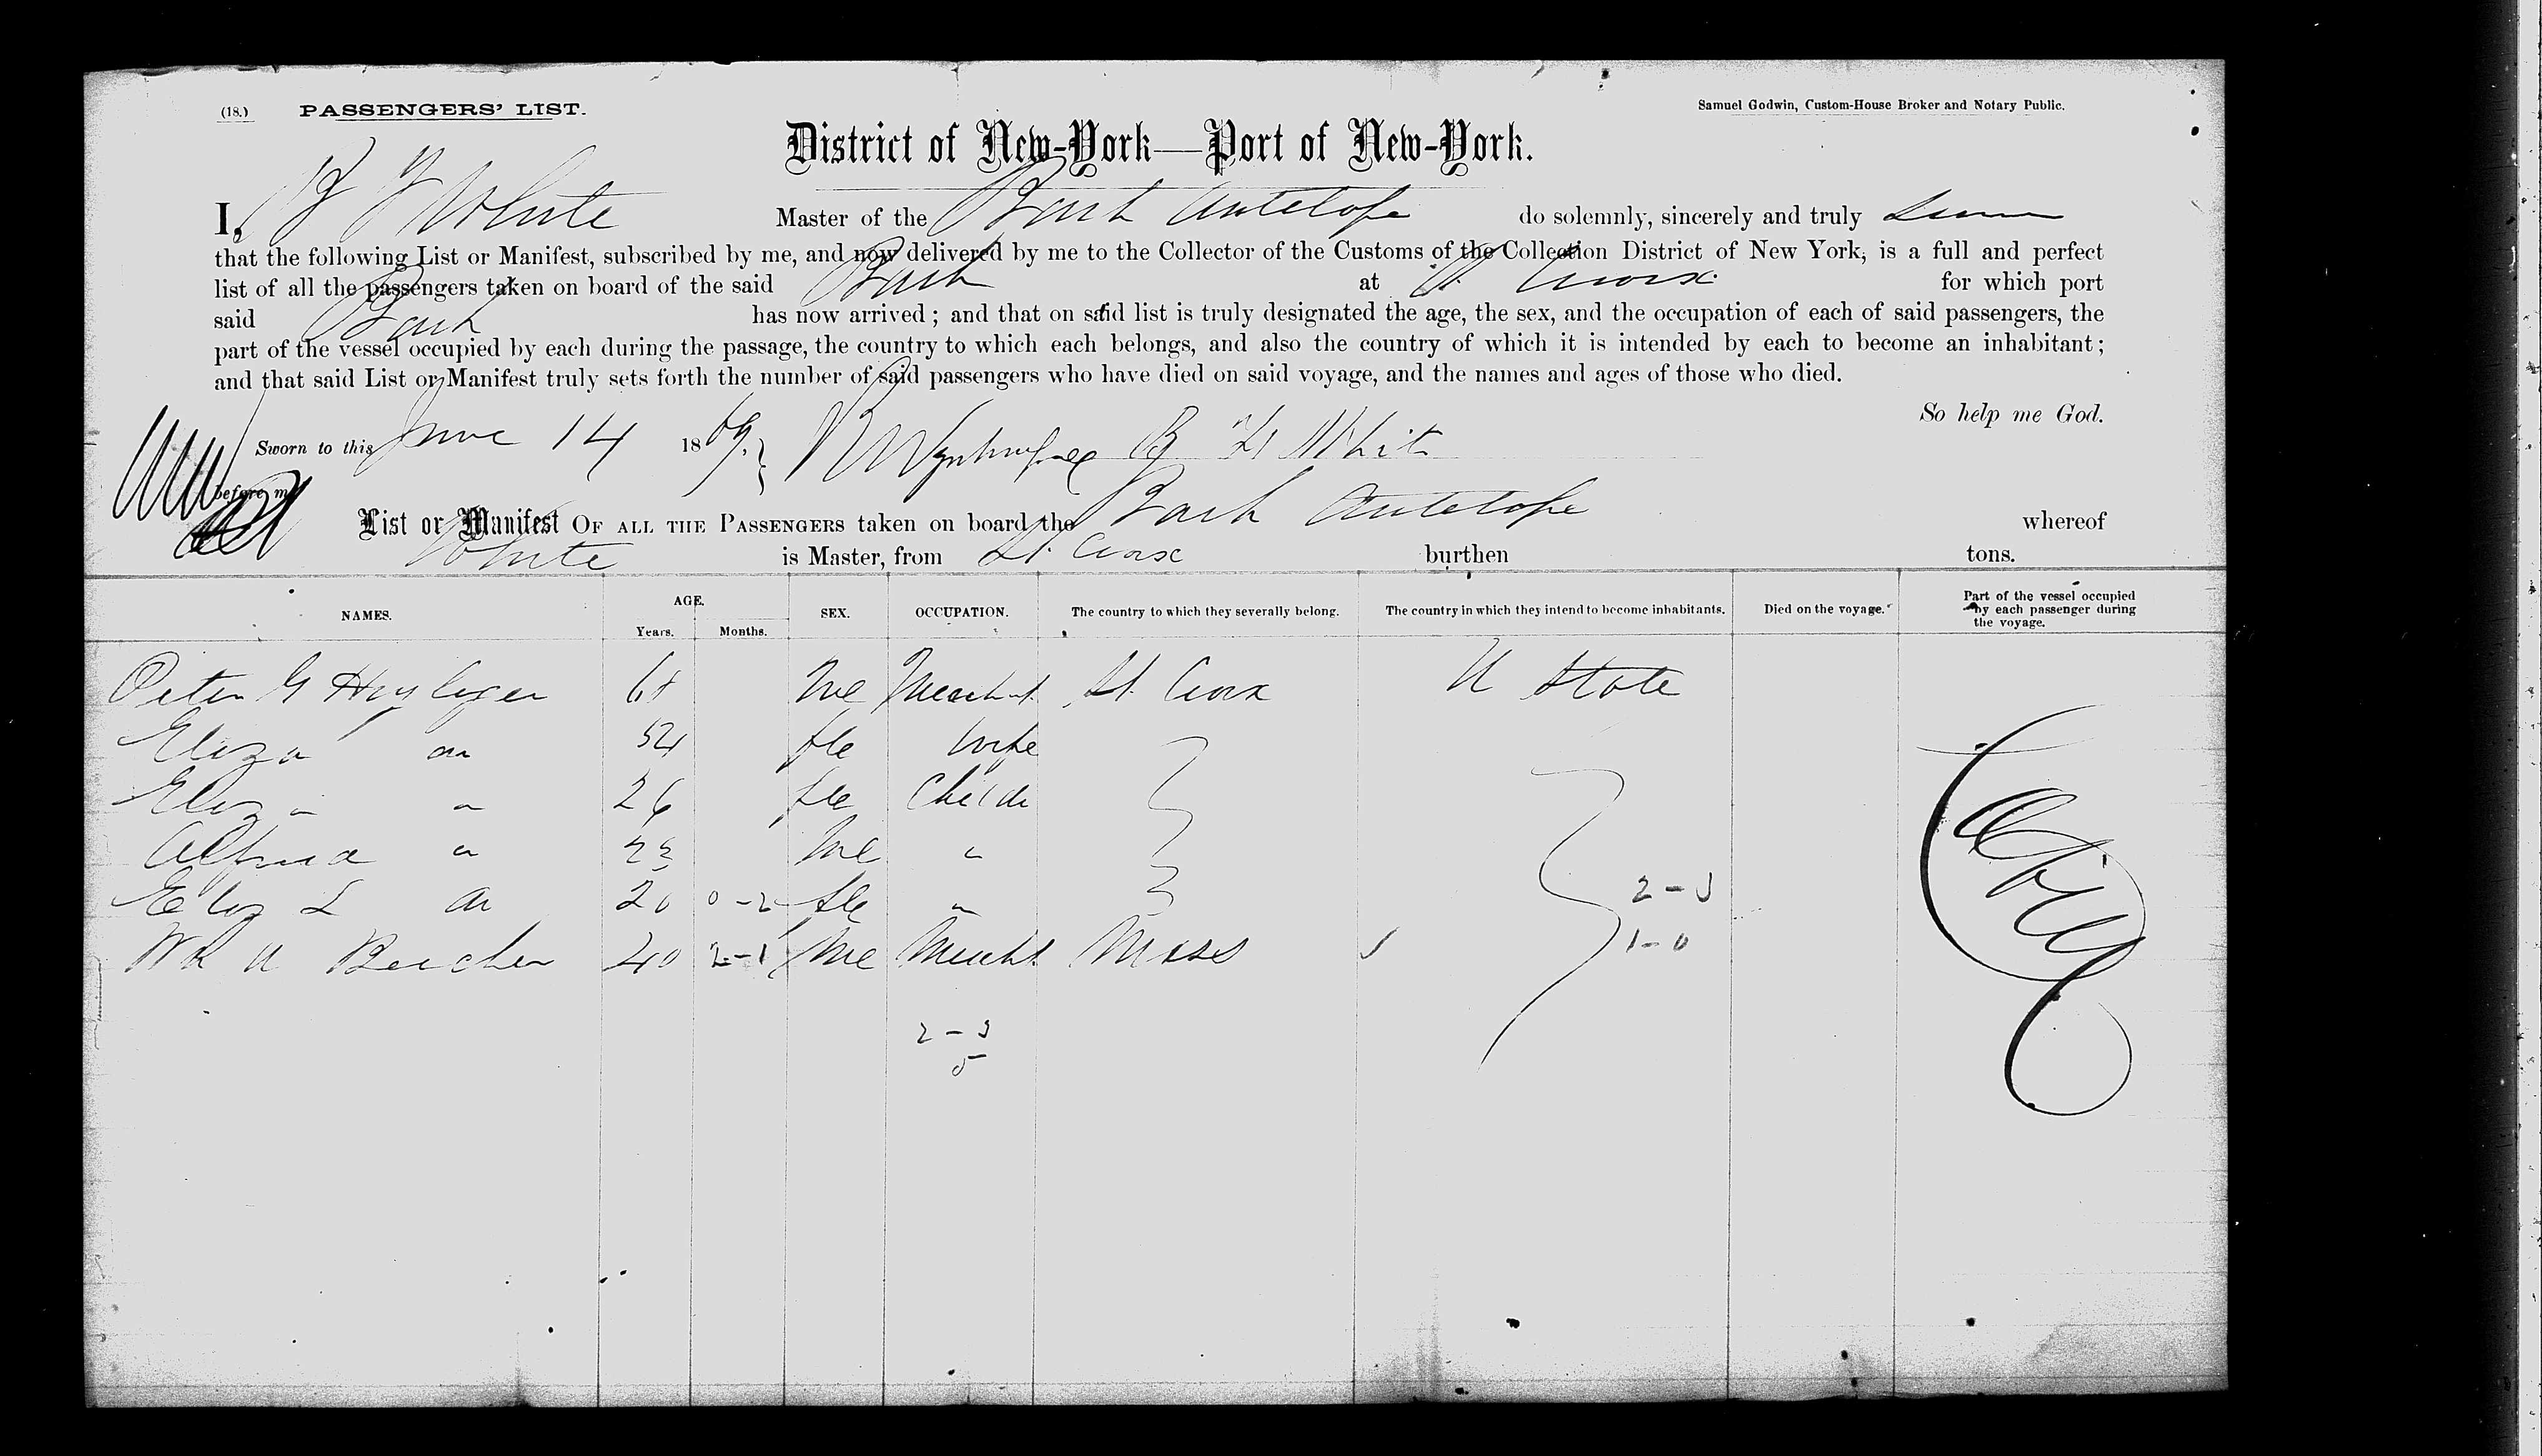 (18.) PASSENGERS' LIST. Samuel Godwin, Custom-House Broker and Notary Public.
District of New-York—Port of New-York.
I, White Master of the Bark Antelope do solemnly, sincerely and truly
that the following List or Manifest, subscribed by me, and now delivered by me to the Collector of the Customs of the Collection District of New York, is a full and perfect
list of all the passengers taken on board of the said Bark at St. Croix for which port
said Bark has now arrived; and that on said list is truly designated the age, the sex, and the occupation of each of said passengers, the
part of the vessel occupied by each during the passage, the country to which each belongs, and also the country of which it is intended by each to become an inhabitant;
and that said List or Manifest truly sets forth the number of said passengers who have died on said voyage, and the names and ages of those who died.
So help me God.
Sworn to this June 14 1869. White
before me
List or Manifest OF ALL THE PASSENGERS taken on board the Bark Antelope whereof
White is Master, from St. Croix burthen tons.
NAMES. AGE. Years. Months. SEX. OCCUPATION. The country to which they severally belong. The country in which they intend to become inhabitants. Died on the voyage. Part of the vessel occupied by each passenger during the voyage.
Peter G Heyliger Me St. Croix U State
Eliza 54 fle wife
Eliz 26 fle Child
Me
Eliz L 20 0-2 fle 2-3
Beecher 40 2-1 Me Mercht Mass 1-0
2-3
5